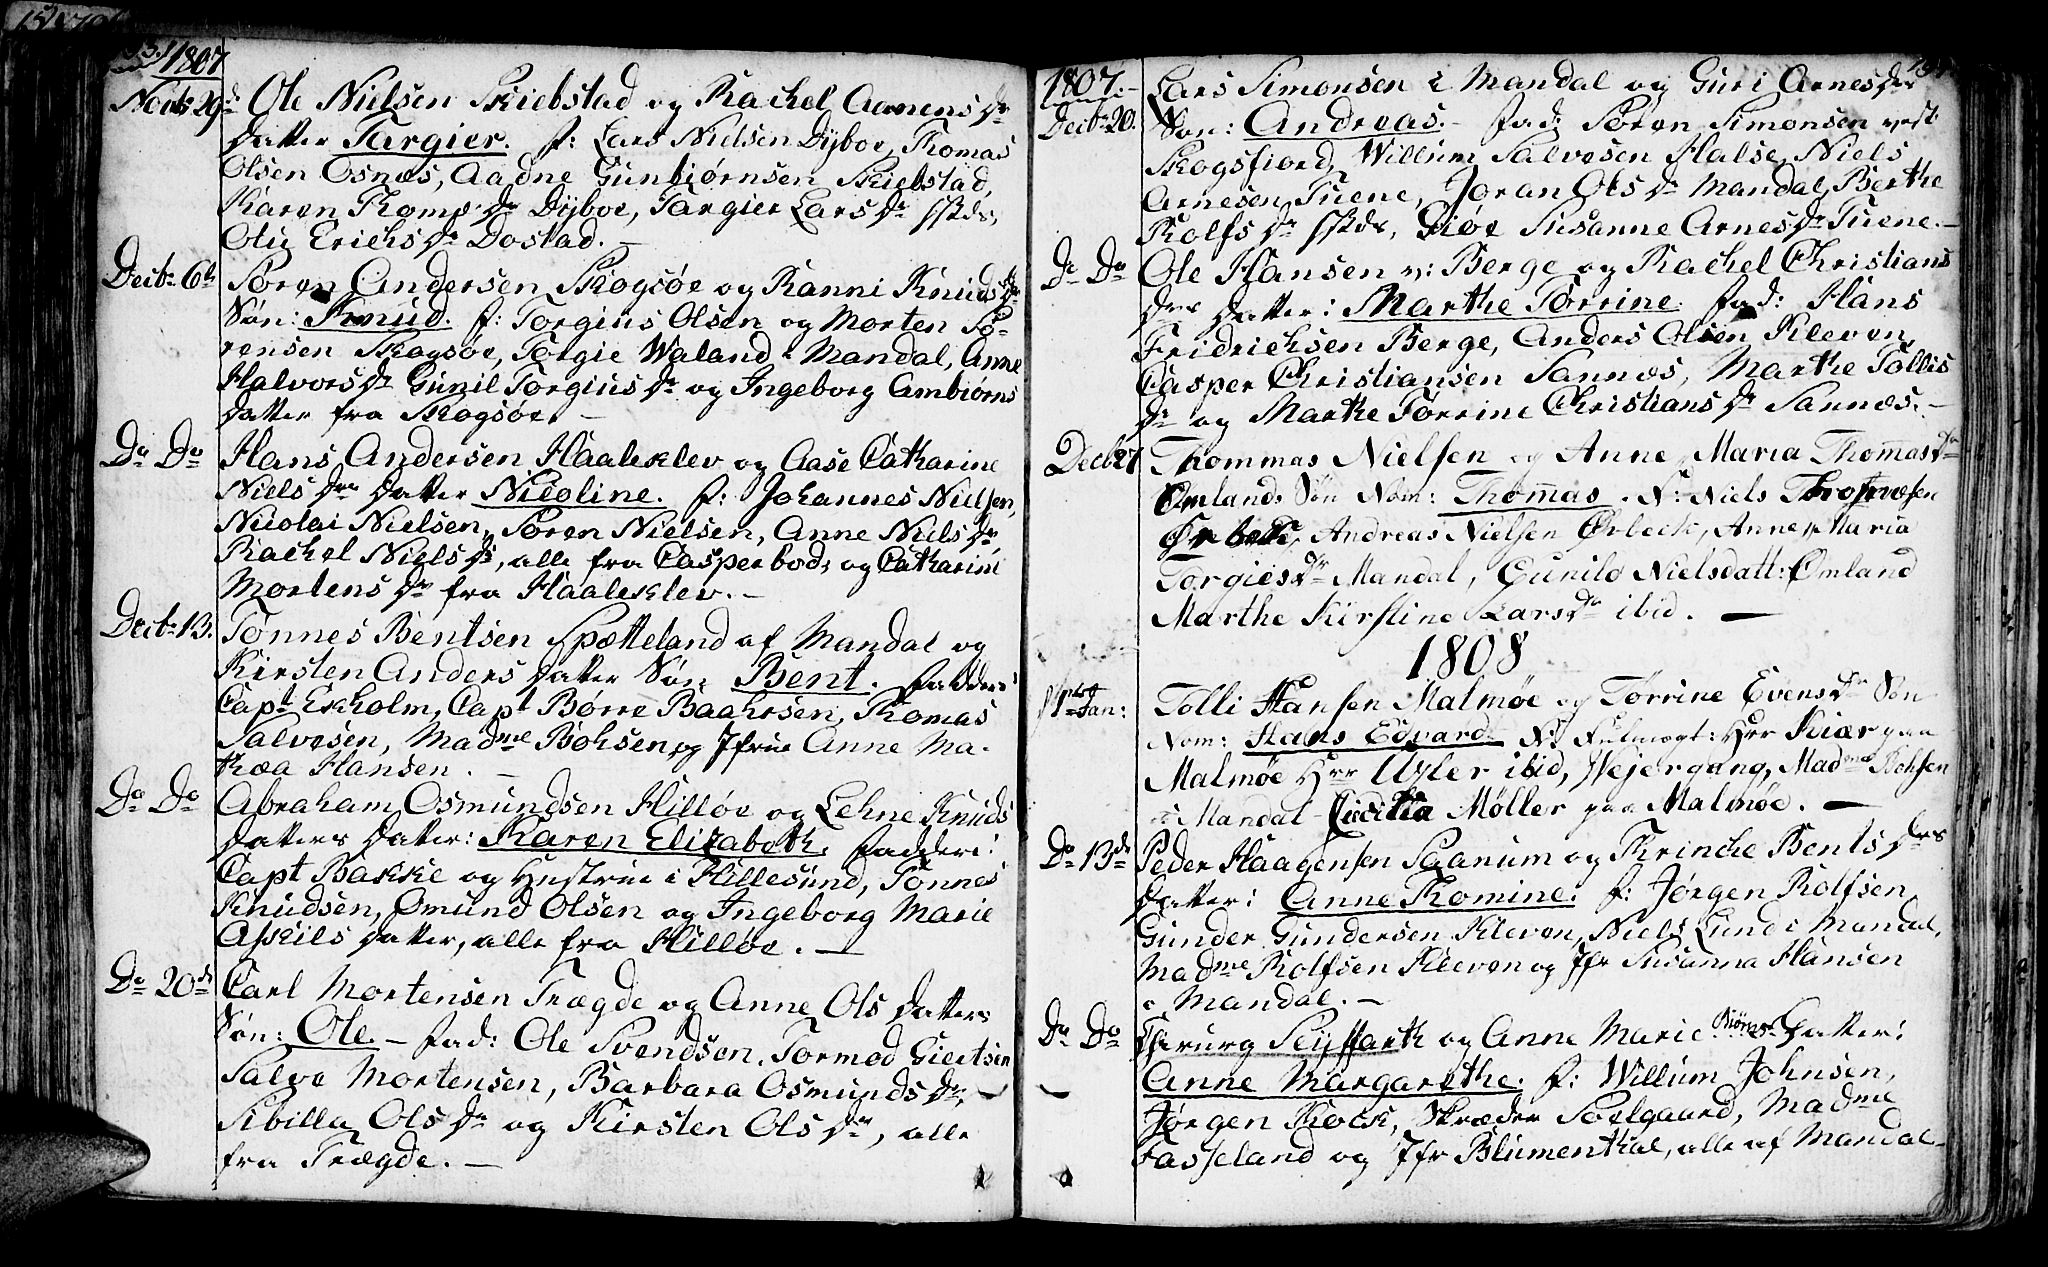 1807
Novbr 29de Ole Nielsen Skiebstad og Rachel Aanensdr
datter Targier. f: Lars Nielsen Dyboe, Thomas
Olsen Osnæs, Aadne Gunbiørnsen Skiebstad,
Karen Thoms dr Dyboe, Targier Lars dr
Olu Erichs dr Dostad. —
Decbr 6te Søren Andersen Skogsøe og Ranni Knuds dr
Søn: Knud. f: Torgius Olsen og Morten Sø-
rensen Skogsøe, Torgie Waland i Mandal, Anne
Halvors dr Gunil Torgius dr og Ingeborg Ambiørns
datter fra Skogsøe. —
Do Do Hans Andersen Haaleklev og Aase Catharine
Niels drs datter Nicoline. f: Johannes Nielsen,
Nicolai Nielsen, Søren Nielsen, Anne Niels dr,
Rachel Niels dr, alle fra Casperbod, og Catharine
Mortens dr fra Haaleklev. —
Decbr 13. Tønnes Bentsen Spætteland af Mandal og
Kirsten Anders datter Søn Bent. faddere:
Capt Ekholm, Capt Børre Baahrsen, Thomas
Salvesen, Madme Bøhsen og Jfrue Anne Ma-
thea Hansen. —
Do Do Abraham Osmundsen Hilløe og Lehne Knuds
datters datter: Karen Elizabeth. faddere:
Capt Bakke og Hustrue i Hillesund, Tønnes
Knudsen, Omund Olsen og Ingeborg Marie
Askils datter, alle fra Hilløe. —
Do 20de Carl Mortensen Trægde og Anne Ols datters
Søn: Ole. — fad: Ole Svendsen, Tormod Giertsen
Salve Mortensen, Barbara Osmunds dr,
Sibilla Ols dr og Kirsten Ols dr, alle
fra Trægde. —
1807. Lars Simonsen i Mandal og Guri Arnes drs
Decbr 20. Søn: Andreas. — fad: Søren Simonsen vest
Skogsfiord, Willum Salvesen Halse, Niels
Arnesen Tuene, Joran Ols dr Mandal, Berthe
Rolfs dr, Giøe Susanne Arnes dr Tuene. —
Do Do Ole Hansen v: Berge og Rachel Christians
drs datter: Marthe Tørrine. fad: Hans
Fridrichsen Berge, Anders Olsen Kleven,
Casper Christiansen Sannæs, Marthe Tollis
dr og Marthe Tørrine Christians dr Sannæs. —
Decb 27 Thommas Nielsen og Anne Maria Thomas dr
Ømland. Søn Nom: Thomas. F: Niels
Andreas Nielsen Ørbeck, Anne Maria
Torgies dr Mandal, Gunild Nielsdatt: Ømland
Marthe Kirstine Lars dr ibid. —
1808
1ste Jan: Tolli Hansen Malmøe og Tørrine Evens dr Søn
Nom: Hans Edvard. F: Fulmægt: Hrr Kiær paa
Malmøe Hrr ibid, Madme Bøhsen
i Mandal Cicilia Møller paa Malmøe. —
Do 13de Peder Haagensen Saanum og Thrinche Bents drs
datter: Anne Thomine. f: Jørgen Rolfsen,
Gunder Gundersen Kleven, Niels Lund i Mandal,
Madme Rolfsen Kleven og Jfr Susanna Hansen
i Mandal. —
Do Do Chirurg Seyffarth og Anne Marie datter:
Anne Margarethe. f: Willum Johnsen,
Jørgen Kock, Skræder Soelgaard, Madme
Fasseland og Jfr Blumenthal, alle af Mandal